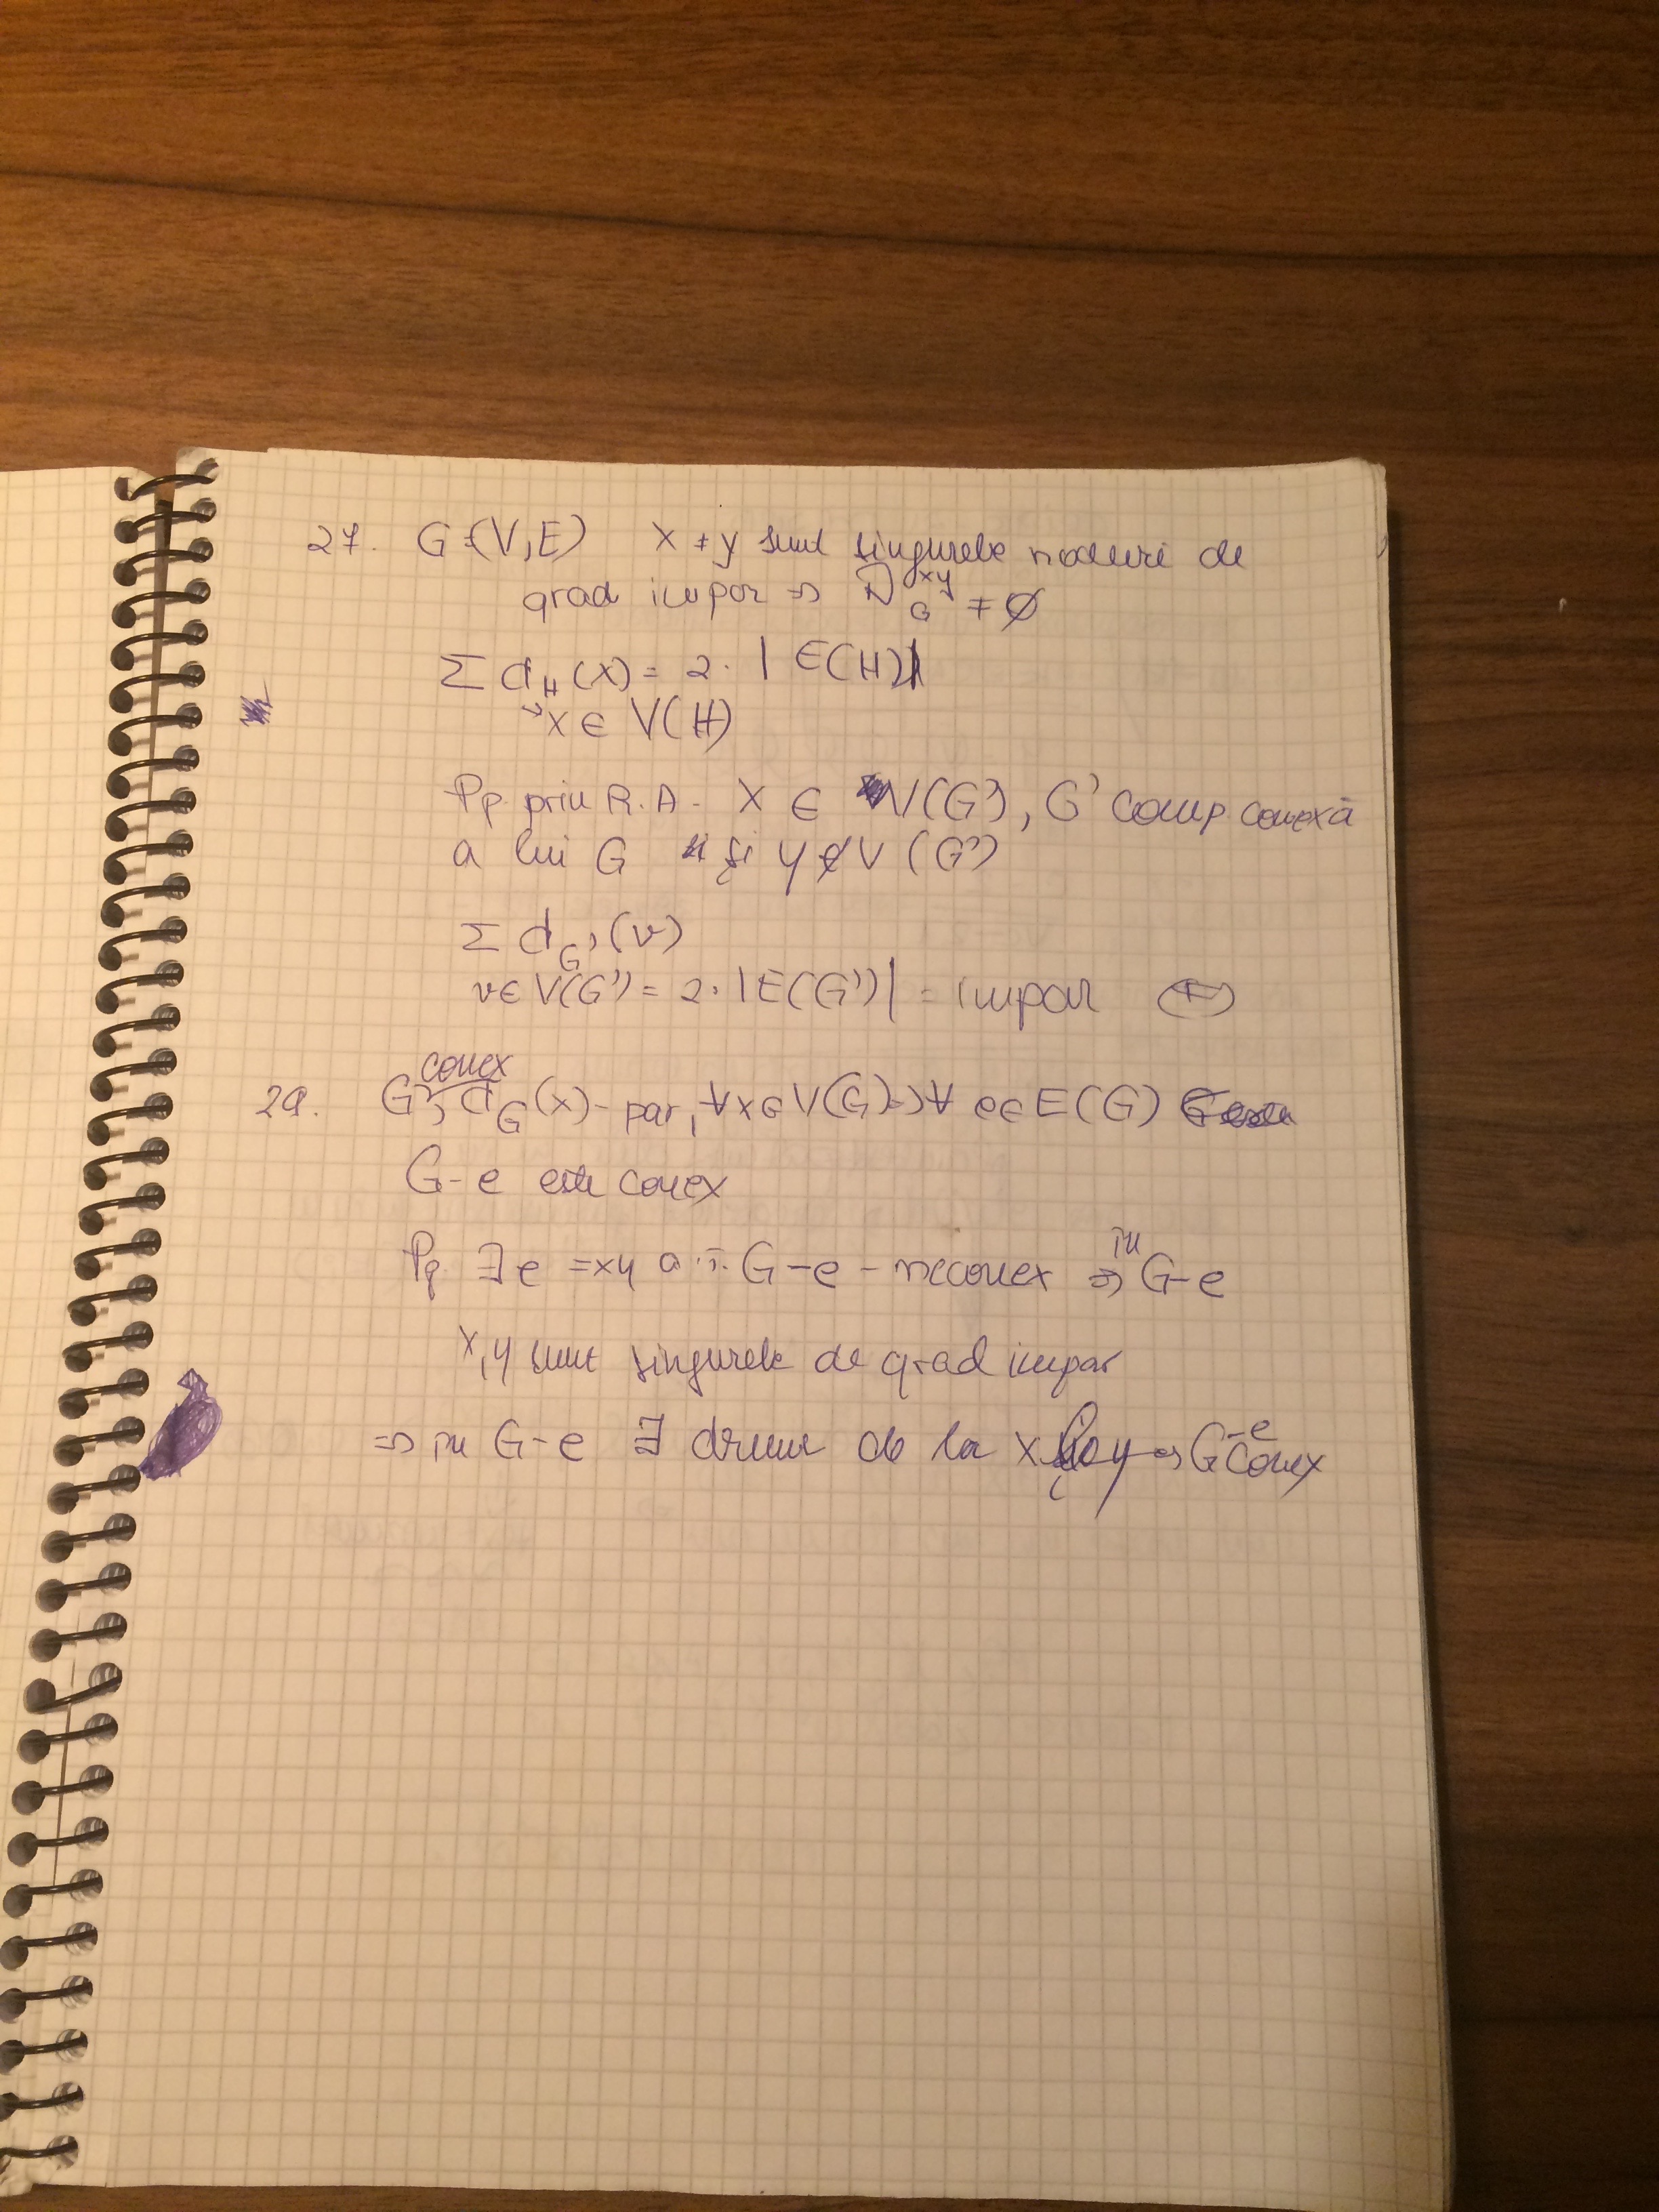 27. G=(V,E) x ≠ y sunt singurele noduri de
grad impar => D_G^{xy} ≠ ∅
Σ d_H(x) = 2·|E(H)|
x ∈ V(H)
Pp prin R.A. X ∈ V(G'), G' comp. conexă
a lui G și y ∉ V(G')
Σ d_{G'}(v)
v∈V(G') = 2·|E(G')| = impar
29. G conex, d_G(x) - par, ∀x∈V(G) => ∀ e∈E(G)
G-e este conex
Pp ∃e = xy a.î. G-e - neconex => în G-e
x,y sunt singurele de grad impar
=> în G-e ∃ drum de la x la y => G-e conex